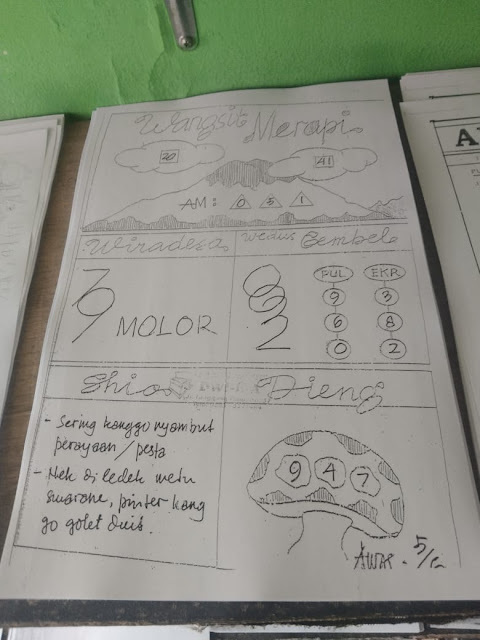 Wangsit Merapi
20
41
AM: 0 5 1
Wiradesa
Wedus Gembel
79 MOLOR
PUL EKR
9 3
6 8
0 2
Shio
Dieng
- Sering kanggo nyambut
perayaan / pesta
- Nek diledek metu
swarane, pinter kang
go golet duit.
9 4 7